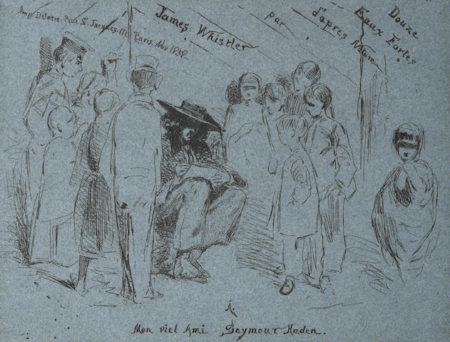 Douze
Eaux Fortes
d'après Nature
par
James Whistler
Imp. Delatre. Rue St. Jacques. 171. Paris. Nov 1858.
A
Mon viel Ami Seymour Haden.